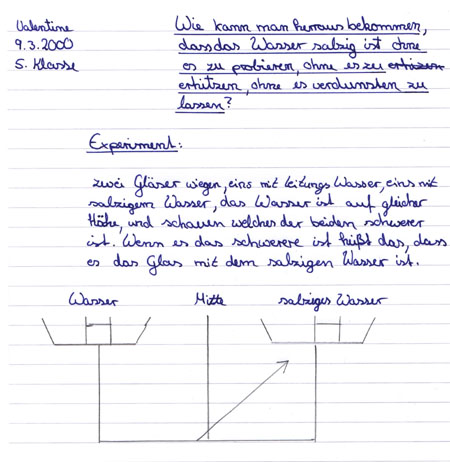 Valentine
9.3.2000
5. Klasse
Wie kann man herrausbekommen,
dass das Wasser salzig ist ohne
es zu probieren, ohne es zu erhizen
erhitzen, ohne es verdunsten zu
lassen?
Experiment:
zwei Gläser wiegen, eins mit Leitungs Wasser, eins mit
salzigem Wasser, das Wasser ist auf gleicher
Höhe, und schauen welches der beiden schwerer
ist. Wenn es das schwerere ist heißt das, dass
es das Glas mit dem salzigen Wasser ist.
Wasser Mitte salziges Wasser